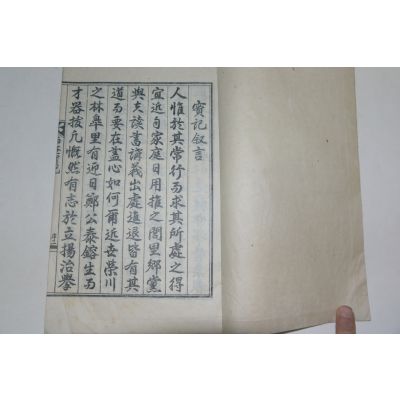 實記叙言
人惟於其常行而求其所處之得
宜近自家庭日用推之閭里鄕黨
與夫讀書講義出處進退皆有其
道而要在盡心如何爾近世榮川
之林皐里有迎日鄭公泰鎔生而
才器拔凡慨然有志於立揚治擧